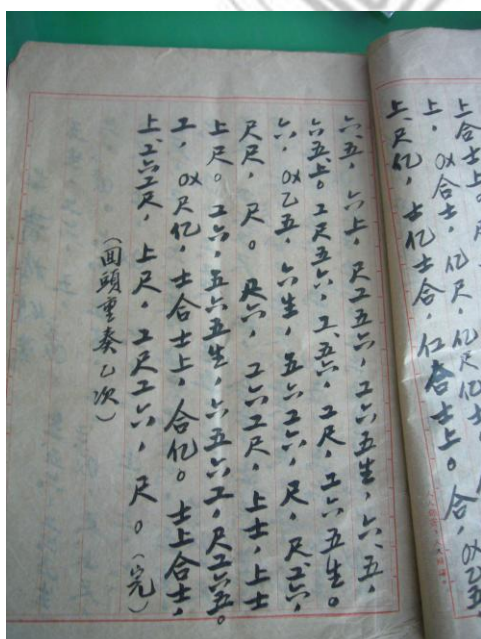 上，0X合士，亿尺，亿尺亿士
上、尺亿，士亿士合，仜合士上。合，0X乙五
六、五，六上，尺工五六，工六五生，六、五，
六五、上。工尺五六，工、五六，工尺，工六五生。
六，0X乙五，六生，五六工六，尺，尺工六，
尺尺，尺。尺六，工六工尺，上士，上士
上尺。工六，五六五生，六五六工，尺工六五。
工，0X尺亿，士合士上，合亿。士上合士，
上、工六工尺，上尺，工尺工六，尺。（完）
（回頭重奏乙次）